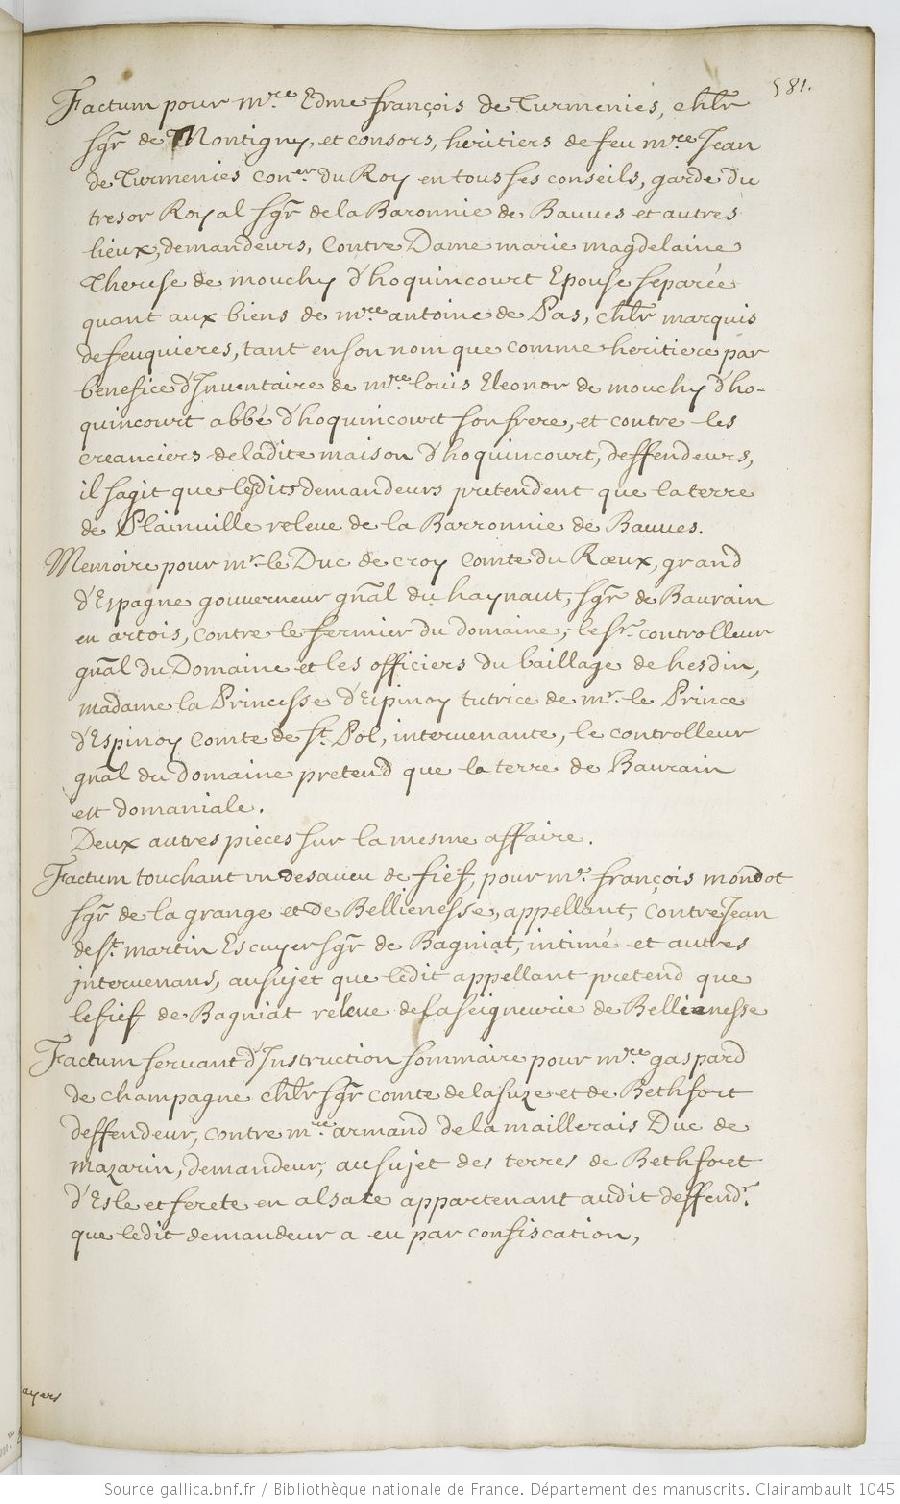 581.
Factum pour mre Edme françois de Turmenies, chlr
sgr de Montigny, et consors, heritiers de feu mre Jean
de Turmenies Coner du Roy en tous ses conseils, garde du
tresor Royal sgr de la Baronnie de Bauues et autres
lieux, demandeurs, Contre Dame marie magdelaine
Therese de mouchy d'hoquincourt Epouse separée
quant aux biens de mre antoine de Pas, chlr marquis
de feuquieres, tant en son nom que comme heritiere par
benefice d'Inuentaire de mre louis Eleonor de mouchy d'ho-
quincourt abbé d'hoquincourt son frere, et contre les
creanciers de ladite maison d'hoquincourt, deffendeurs,
il sagit que lesdits demandeurs pretendent que la terre
de Plainuille releue de la Barronnie de Bauues.
Memoire pour mr le Duc de croy Comte du Rœux, grand
d'Espagne gouuerneur gnal du haynaut, sgr de Baurain
en artois, contre le fermier du domaine, le sr controlleur
gnal du Domaine et les officiers du baillage de hesdin,
madame la Princesse d'Espinoy tutrice de mr le Prince
d'Espinoy Comte de St Pol, interuenante, le controlleur
gnal du domaine pretend que la terre de Baurain
est domaniale.
Deux autres pieces sur la mesme affaire.
Factum touchant vn desaueu de fief, pour mre françois mondot
sgr de la grange et de Bellienesse, appellant, Contre Jean
de St martin Escuyer sgr de Bagniat, intimé et autres
interuenans, au sujet que ledit appellant pretend que
le fief de Bagniat releue de la seigneurie de Bellienesse
Factum seruant d'Instruction sommaire pour mre gaspard
de champagne chlr sgr comte de la suze et de Bethfort
deffendeur, contre mre armand de la maillerais Duc de
mazarin, demandeur, au sujet des terres de Bethfort
d'Esle et ferete en alsace appartenant audit deffendr
que ledit demandeur a eu par confiscation,
Source gallica.bnf.fr / Bibliothèque nationale de France. Département des manuscrits. Clairambault 1045